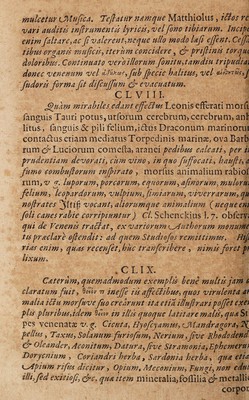 mulcetur Musica. Testatur namque Matthiolus, ictos
vari auditis instrumentis lyricis, vel sono tibiarum. Incipe
enim saltare, ac si valerent, neque ullo modo læsi essent. Ces
tibus organis musicis, iterum concidere, & pristinos torque
doloribus. Continuato verò illorum sonitu, tamdiu tripudiare
donec venenum vel sub specie halitus, vel
sudoris forma sit discussum & evacuatum.
CLVIII.
Quàm mirabiles edant effectus Leonis efferati morsus
sanguis Tauri potus, ursorum cerebrum, cerebrum, anh
litus, sanguis & pili felium, ictus Draconum marinorum
contactus etiam mediatus Torpedinis marinæ, ova Barb
rum & Luciorum comesta, aranei pedibus calcati, per
prudentiam devorati, cum vino, in quo suffocati, hausti,
fumo combustorum inspirato, morsus animalium rabioso
rum, v. g. luporum, porcorum, equorum, asinorum, mulorum
felium, leopardorum, vulpium, simiarum, viverrarum, quas
nostrates vocant, aliorumque animalium (nequaquam
soli canes rabie corripiuntur) Cl. Schenckius l. 7. observat.
qui de Venenis tractat, ex variorum Authorum monumentis
tu præclarè ostendit: ad quem Studiosos remittimus. Hi
rias enim, quas recenset, huc transcribere, nimis foret pro
lixum.
CLIX.
Cæterùm, quemadmodum exemplis bene multis jam
claratum fuit, inesse iis affectibus, quos virulenta ani
malia ictu morsuve suo creârunt ita etiā illustrari posset exem
plis pluribus, idem in illis quoque latitare malis, quæ Stir
pes venenatæ v. g. Cicuta, Hyoscyamus, Mandragora, N
pellus, Taxus, Solanum furiosum, Nerium, sive Rhododen
& Oleander, Aconitum, Datura, sive Stramonia, Ephemeron
Dorycnium, Coriandri herba, Sardonia herba, quæ etiam
Apium risus dicitur, Opium, Meconium, Fungi, non edules
illi, sed exitiosi, &c. quæ item mineralia, fossilia & metallica
corpora